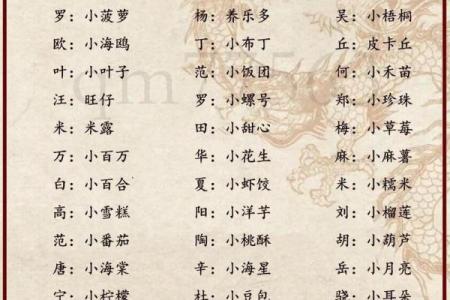 罗：小菠萝 杨：养乐多 吴：小梧桐
欧：小海鸥 丁：小布丁 丘：皮卡丘
叶：小叶子 范：小饭团 何：小禾苗
汪：旺仔 罗：小螺号 郑：小珍珠
米：米露 田：小甜心 梅：小草莓
万：小百万 华：小花生 麻：小麻薯
白：小百合 夏：小虾饺 米：小糯米
高：小雪糕 阳：小洋芋 刘：小榴莲
范：小番茄 陶：小桃酥 胡：小葫芦
唐：小海棠 辛：小海星 岳：小月亮
宁：小柠檬 杜：小豆包 骁：小耳朵